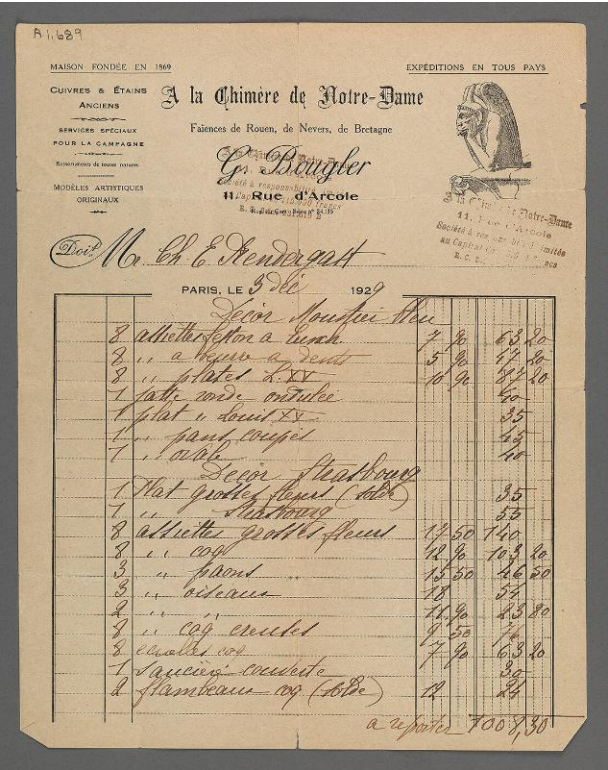 A1.689
MAISON FONDÉE EN 1869
EXPÉDITIONS EN TOUS PAYS
CUIVRES & ÉTAINS
ANCIENS
SERVICES SPÉCIAUX
POUR LA CAMPAGNE
MODÈLES ARTISTIQUES
ORIGINAUX
A la Chimère de Notre-Dame
Faïences de Rouen, de Nevers, de Bretagne
G. Bougler
11, Rue d'Arcole
A la Chimère de Notre-Dame
11, Rue d'Arcole
Société à responsabilité limitée
au Capital de
R.C.S.
Doit Mr Ch E
PARIS, LE 3 déc 1929
Décor Moustier bleu
8 assiettes 7 90 63 20
8 " a beurre a dents 5 90 47 20
8 " plates L. XV 10 90 87 20
1 ronde ondulée 40
1 plat " Louis XV 35
1 " pans coupés 45
1 " ovale 40
Decor Strasbourg
1 Plat grosses fleurs (solde) 35
1 " Strasbourg 55
8 assiettes grosses fleurs 17 50 140
8 " coq 12 90 103 20
3 " paons " 15 50 46 50
3 " oiseaux 18 54
2 " " 11 90 23 80
8 " coq creuses 9 50 76
8 coq 7 90 63 20
1 couverte 30
2 flambeaux coq (solde) 12 24
a reporter 1008,30